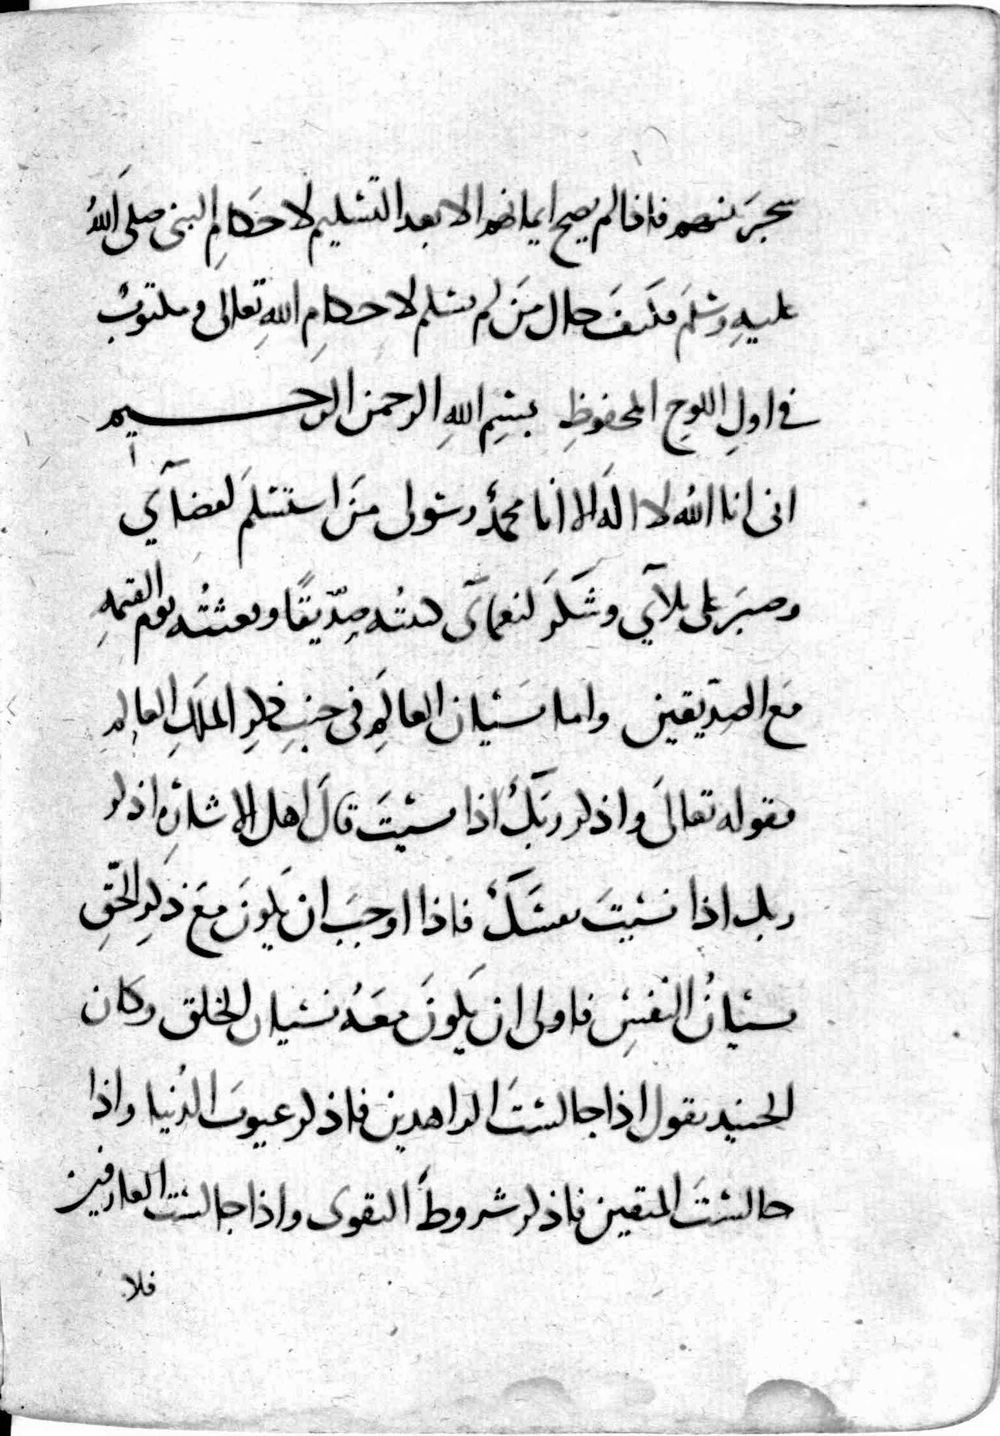 شجر بينهم فاذا لم يصح ايمانهم الا بعد التسليم لاحكام النبى صلى الله
عليه وسلم فكيف حال من لم يسلم لاحكام الله تعالى ومكتوب
في اول اللوح المحفوظ بسم الله الرحمن الرحيم
انى انا الله لا اله الا انا محمد رسولى من استسلم لقضآي
وصبر على بلآي وشكر لنعمآى كتبته صديقا وبعثته يوم القيمه
مع الصديقين واما نسيان العالم فى جنب ذكر الملك العالم
فقوله تعالى واذكر ربك اذا نسيت قال اهل الاشارة اذكر
ربك اذا نسيت نفسك فاذا اوجب ان يكون مع ذكر الحق
نسيان النفس فاولى ان يكون معه نسيان الخلق وكان
الجنيد يقول اذا جالست الزاهدين فاذكر عيوب الدنيا واذا
جالست المتقين فاذكر شروط التقوى واذا جالست العارفين
فلا